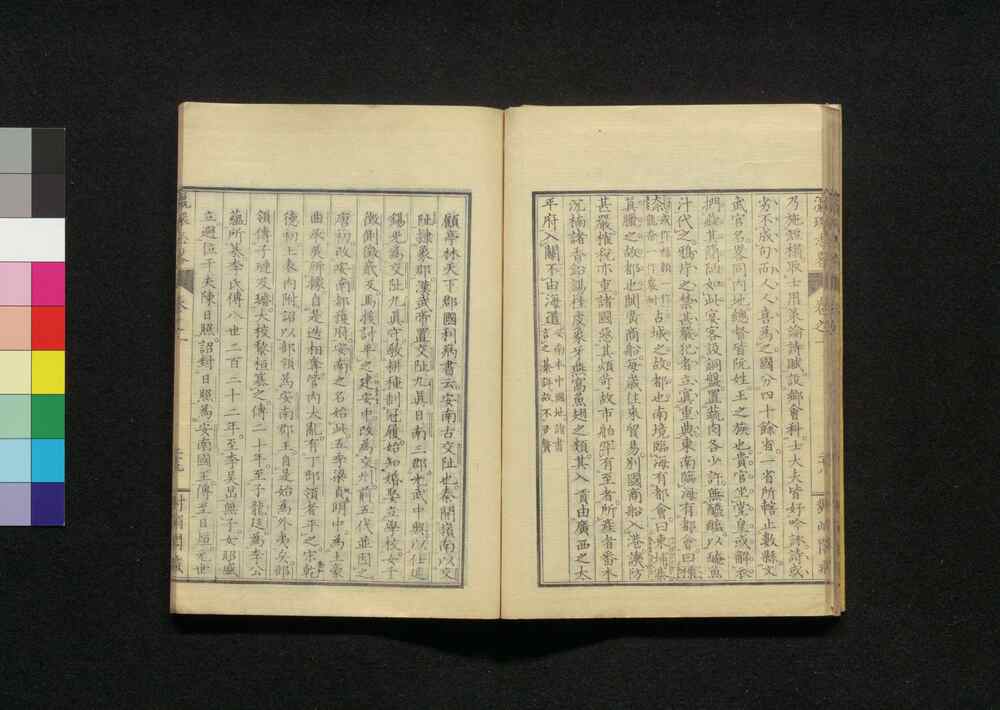 乃施短檠取士用策論詩賦設鄉會科士大夫皆好吟詠詩或
劣不成句而人人喜為之國分四十餘省一省所轄止數縣文
武官名畧同内地總督皆阮姓王之族也貴官坐堂皇或解衣
捫蝨其簡陋如此宴客設銅盤置蔬肉各少許無醯醢以醃魚
汁代之鴉片之禁甚嚴犯者立寘重典東南臨海有都會曰
占城之故都也南境臨海有都會曰
真臘之故都也閩廣商船每歲往來貿易別國商船入港譏防
甚嚴榷稅亦重諸國惡其煩苛故市舶罕有至者所產者番木
沉楠諸香鉛錫桂皮象牙燕窩魚翅之類其入 貢由廣西之太
平府入關不由海道
顧亭林天下郡國利病書云安南古交阯也秦開嶺南以交
阯隸象郡漢武帝置交阯九真日南三郡光武中興以任延
錫光為交阯九真守教耕種制冠履始知婚娶立學校女子
徵側徵貳反馬援討平之建安中改為交州前五代並因之
唐初改安南都護府安南之名始此五季梁貞明中為土豪
曲承美所據自是迭相奪管内大亂有丁部領者平之宋乾
德初上表内附詔以部領為安南郡王自是始為外夷矣部
領傳子璉及璿大校黎桓篡之傳二十年至子龍廷為李公
蘊所篡李氏傳八世二百二十二年至李昊旵無子女昭盛
立遜位于夫陳日照詔封日照為安南國王傳至日烜元世